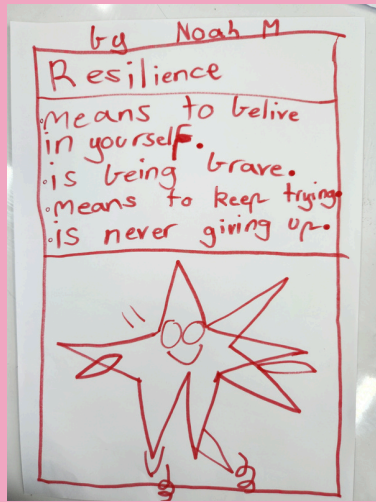 by Noah M
Resilience
◦Means to belive
in yourself.
◦is being brave.
◦Means to keep trying.
◦is never giving up.